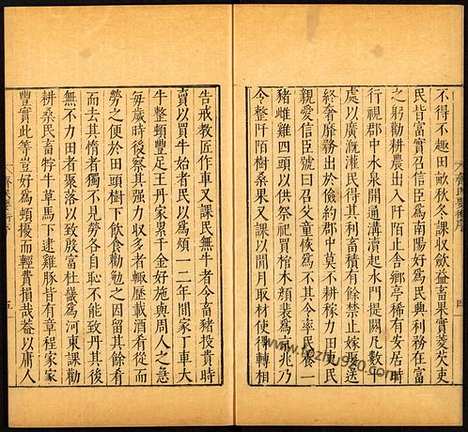 不得不趣田畝秋冬課收斂益畜果實菱芡吏
民皆富實召信臣爲南陽好爲民興利務在富
之躬勸耕農出入阡陌止舍鄉亭稀有安居時
行視郡中水泉開通溝瀆起水門提閼凡數十
處以廣溉灌民得其利畜積有餘禁止嫁娶送
終奢靡務出於儉約郡中莫不耕稼力田吏民
親愛信臣號曰召父童恢爲不其令率民養一
豬雌雞四頭以供祭祀買棺木顏裴爲京兆乃
令整阡陌樹桑果又課以閒月取材使得轉相
告戒教匠作車又課民無牛者令畜豬投貴時
賣以買牛始者民以爲煩一二年間家丁車大
牛整頓豐足王丹家累千金好施與周人之急
每歲時後察其強力收多者輒歷載酒肴從而
勞之便於田頭樹下飲食勸勉之因留其餘肴
而去其惰者獨不見勞各自恥不能致丹其後
無不力田者聚落以致殷富杜畿爲河東課勸
耕桑民畜牸牛草馬下逮雞豚皆有章程家家
豐實此等豈好爲煩擾而輕費損哉益以庸人
五
四